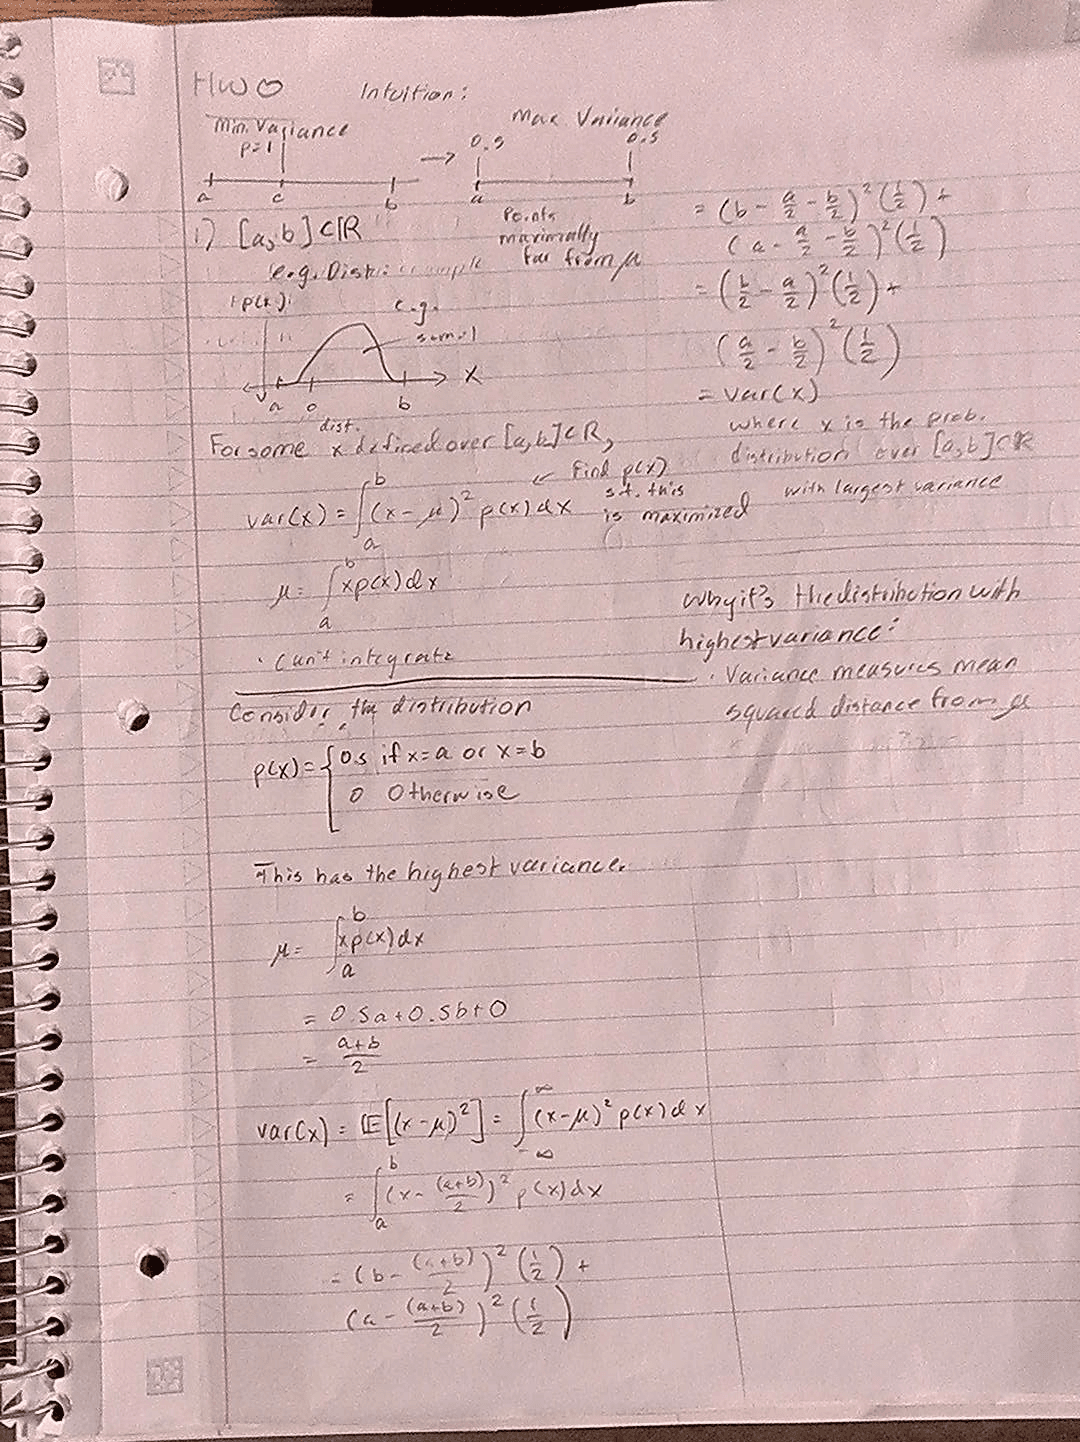 HW 0
Intuition:
Min. Variance
p=1
a c b
→
Max Variance
0.5 0.5
a b
Points
maximally
far from μ
1) [a,b] ⊂ ℝ
e.g. Distr. example
p(x)
e.g.
sum=1
a 0 b x
dist.
For some x defined over [a,b] ⊂ ℝ,
var(x) = ∫_a^b (x-μ)² p(x) dx
← Find p(x)
s.t. this
is maximized
μ = ∫_a^b xp(x) dx
· Can't integrate
Consider the distribution
p(x) = { 0.5 if x=a or x=b
0 Otherwise
This has the highest variance.
μ = ∫_a^b xp(x) dx
= 0.5a+0.5b+0
= (a+b)/2
var(x) = 𝔼[(x-μ)²] = ∫_{-∞}^{∞} (x-μ)² p(x) dx
= ∫_a^b (x - (a+b)/2)² p(x) dx
= (b - (a+b)/2)² (1/2) +
(a - (a+b)/2)² (1/2)
= (b - a/2 - b/2)² (1/2) +
(a - a/2 - b/2)² (1/2)
= (b/2 - a/2)² (1/2) +
(a/2 - b/2)² (1/2)
= var(x)
where x is the prob.
distribution over [a,b] ⊂ ℝ
with largest variance
Why it's the distribution with
highest variance:
· Variance measures mean
squared distance from μ